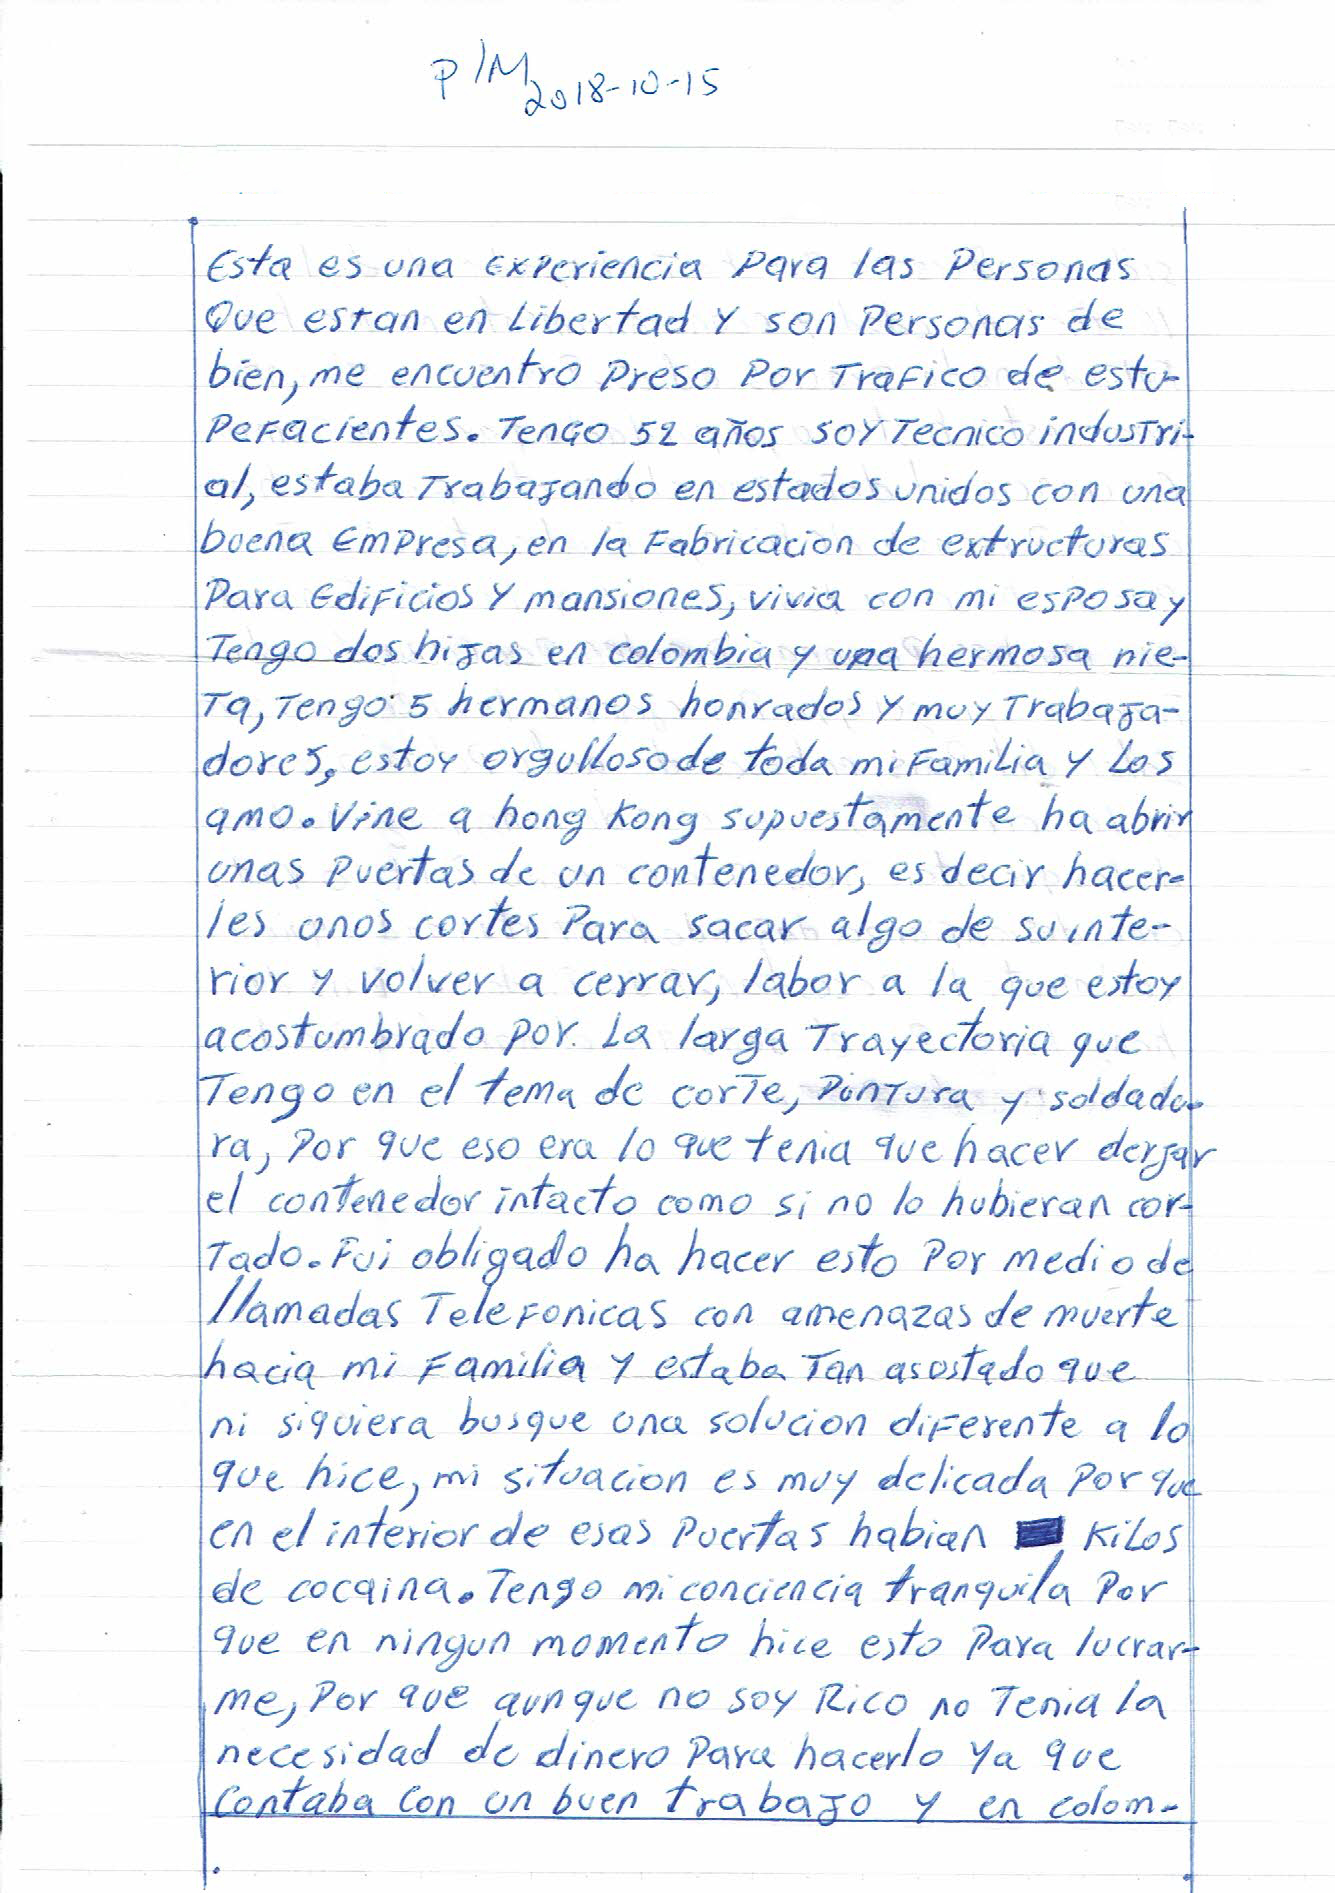 P/M 2018-10-15
Esta es una Experiencia Para las Personas
Que estan en Libertad Y son Personas de
bien, me encuentro Preso Por Trafico de estu-
Pefacientes. Tengo 52 años soy Tecnico industri-
al, estaba Trabajando en estados unidos con una
buena Empresa, en la Fabricacion de extructuras
Para Edificios Y mansiones, vivia con mi esposa y
Tengo dos hijas en colombia y una hermosa nie-
Ta, Tengo 5 hermanos honrados Y muy Trabaja-
dores, estoy orgulloso de toda mi Familia Y Los
amo. Vine a hong Kong supuestamente ha abrir
unas Puertas de un contenedor, es decir hacer-
les unos cortes Para sacar algo de su inte-
rior y volver a cerrar, labor a la que estoy
acostumbrado por La larga Trayectoria que
Tengo en el tema de corte, Pintura y soldadu-
ra, Por que eso era lo que tenia que hacer derjar
el contenedor intacto como si no lo hubieran cor-
Tado. Fui obligado ha hacer esto Por medio de
llamadas Telefonicas con amenazas de muerte
hacia mi Familia Y estaba Tan asustado que
ni siquiera busque una solucion diferente a lo
que hice, mi situacion es muy delicada Por que
en el interior de esas Puertas habian Kilos
de cocaina. Tengo mi conciencia tranquila Por
que en ningun momento hice esto Para lucrar-
me, Por que aunque no soy Rico no Tenia la
necesidad de dinero Para hacerlo Ya que
Contaba Con un buen trabajo y en colom-